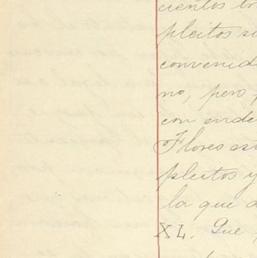 cientos tr
pleitos si
convenid
no, pero,
con evide
Flores as
pleitos y
la que d
XL. Que,